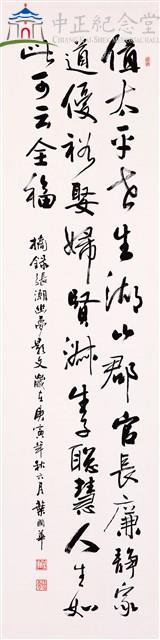 中正紀念堂
CHIANG KAI-SHEK MEMORIAL HALL
值太平世生湖山郡官長廉靜家
道優裕娶婦賢淑生子聰慧人生如
此可云全福
摘錄張潮幽夢影文歲在庚寅年秋六月葉國華